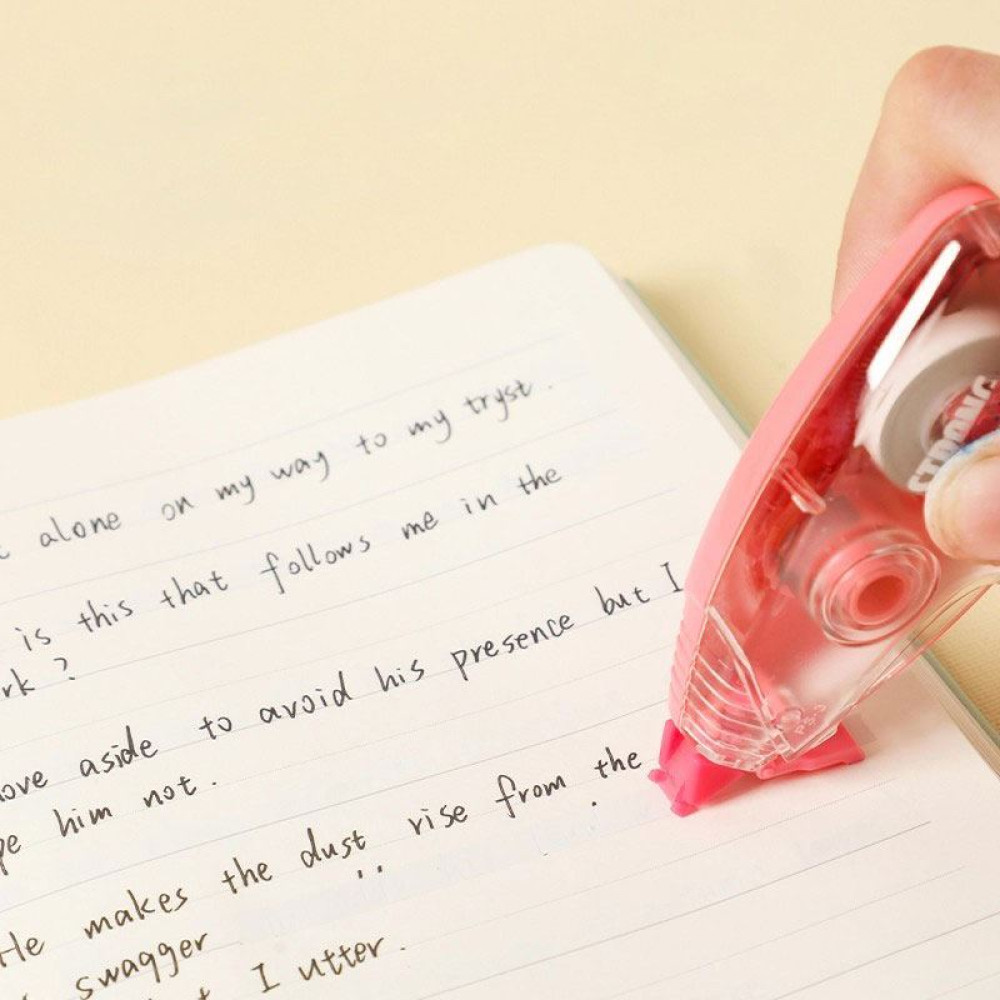 alone on my way to my tryst.
is this that follows me in the
rk?
ove aside to avoid his presence but I
pe him not.
He makes the dust rise from the
swagger
I utter.
STRONG